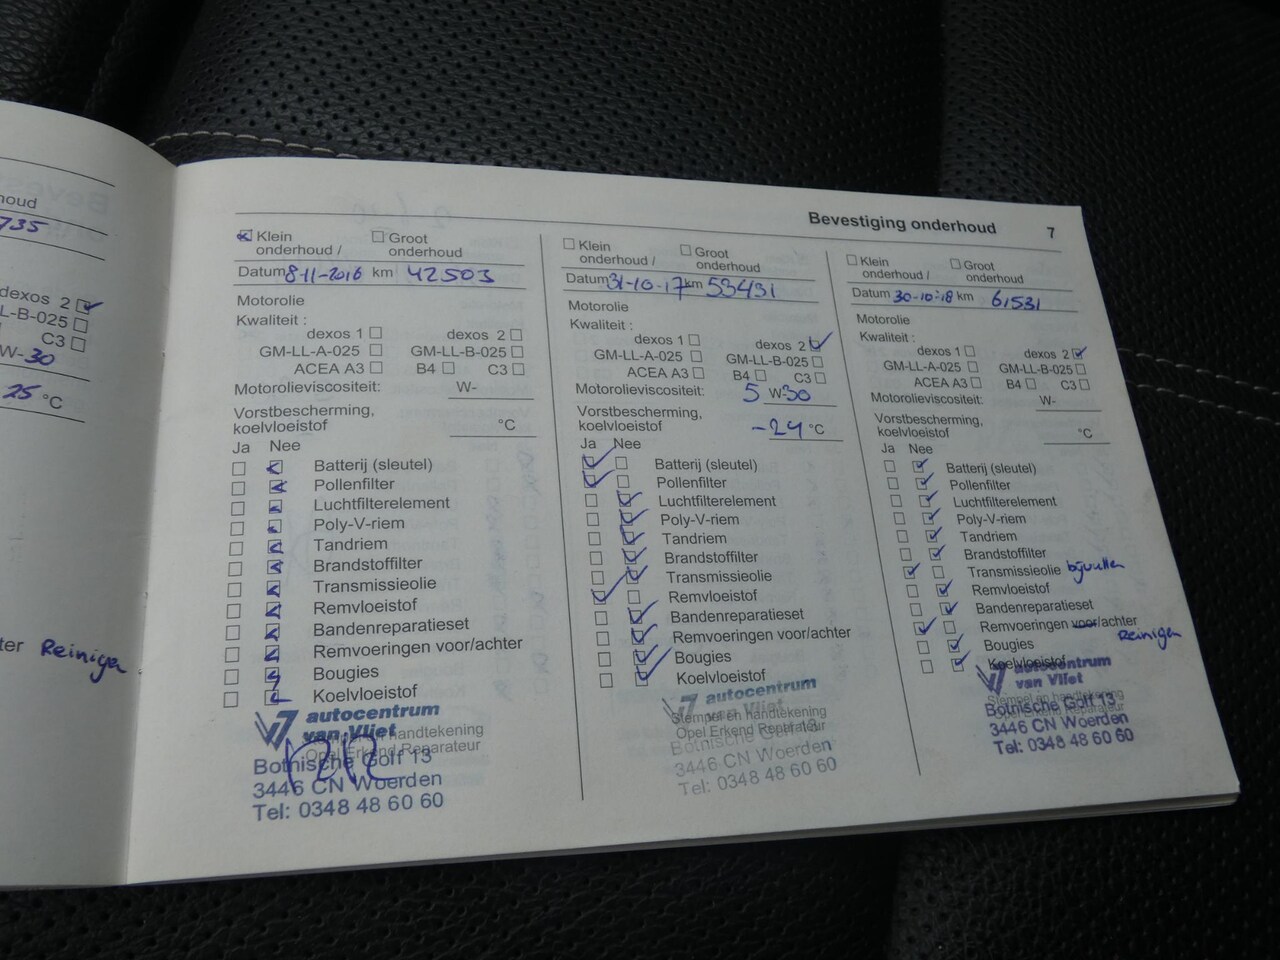 houd
735
dexos 2
L-B-025
C3
W-30
25 °C
ter Reinigen
Bevestiging onderhoud 7
Klein onderhoud / Groot onderhoud
Datum 8-11-2016 km 42503
Motorolie
Kwaliteit :
dexos 1 dexos 2
GM-LL-A-025 GM-LL-B-025
ACEA A3 B4 C3
Motorolieviscositeit: W-
Vorstbescherming,
koelvloeistof °C
Ja Nee
Batterij (sleutel)
Pollenfilter
Luchtfilterelement
Poly-V-riem
Tandriem
Brandstoffilter
Transmissieolie
Remvloeistof
Bandenreparatieset
Remvoeringen voor/achter
Bougies
Koelvloeistof
autocentrum
van Vliet
Stempel en handtekening
Opel Erkend Reparateur
Botnische Golf 13
3446 CN Woerden
Tel: 0348 48 60 60
Klein onderhoud / Groot onderhoud
Datum 31-10-17 km 53431
Motorolie
Kwaliteit :
dexos 1 dexos 2
GM-LL-A-025 GM-LL-B-025
ACEA A3 B4 C3
Motorolieviscositeit: 5 W-30
Vorstbescherming,
koelvloeistof -24 °C
Ja Nee
Batterij (sleutel)
Pollenfilter
Luchtfilterelement
Poly-V-riem
Tandriem
Brandstoffilter
Transmissieolie
Remvloeistof
Bandenreparatieset
Remvoeringen voor/achter
Bougies
Koelvloeistof
autocentrum
van Vliet
Stempel en handtekening
Opel Erkend Reparateur
Botnische Golf 13
3446 CN Woerden
Tel: 0348 48 60 60
Klein onderhoud / Groot onderhoud
Datum 30-10-'18 km 61531
Motorolie
Kwaliteit :
dexos 1 dexos 2
GM-LL-A-025 GM-LL-B-025
ACEA A3 B4 C3
Motorolieviscositeit: W-
Vorstbescherming,
koelvloeistof °C
Ja Nee
Batterij (sleutel)
Pollenfilter
Luchtfilterelement
Poly-V-riem
Tandriem
Brandstoffilter
Transmissieolie bijvullen
Remvloeistof
Bandenreparatieset
Remvoeringen voor/achter
Reinigen
Bougies
Koelvloeistof
autocentrum
van Vliet
Stempel en handtekening
Opel Erkend Reparateur
Botnische Golf 13
3446 CN Woerden
Tel: 0348 48 60 60